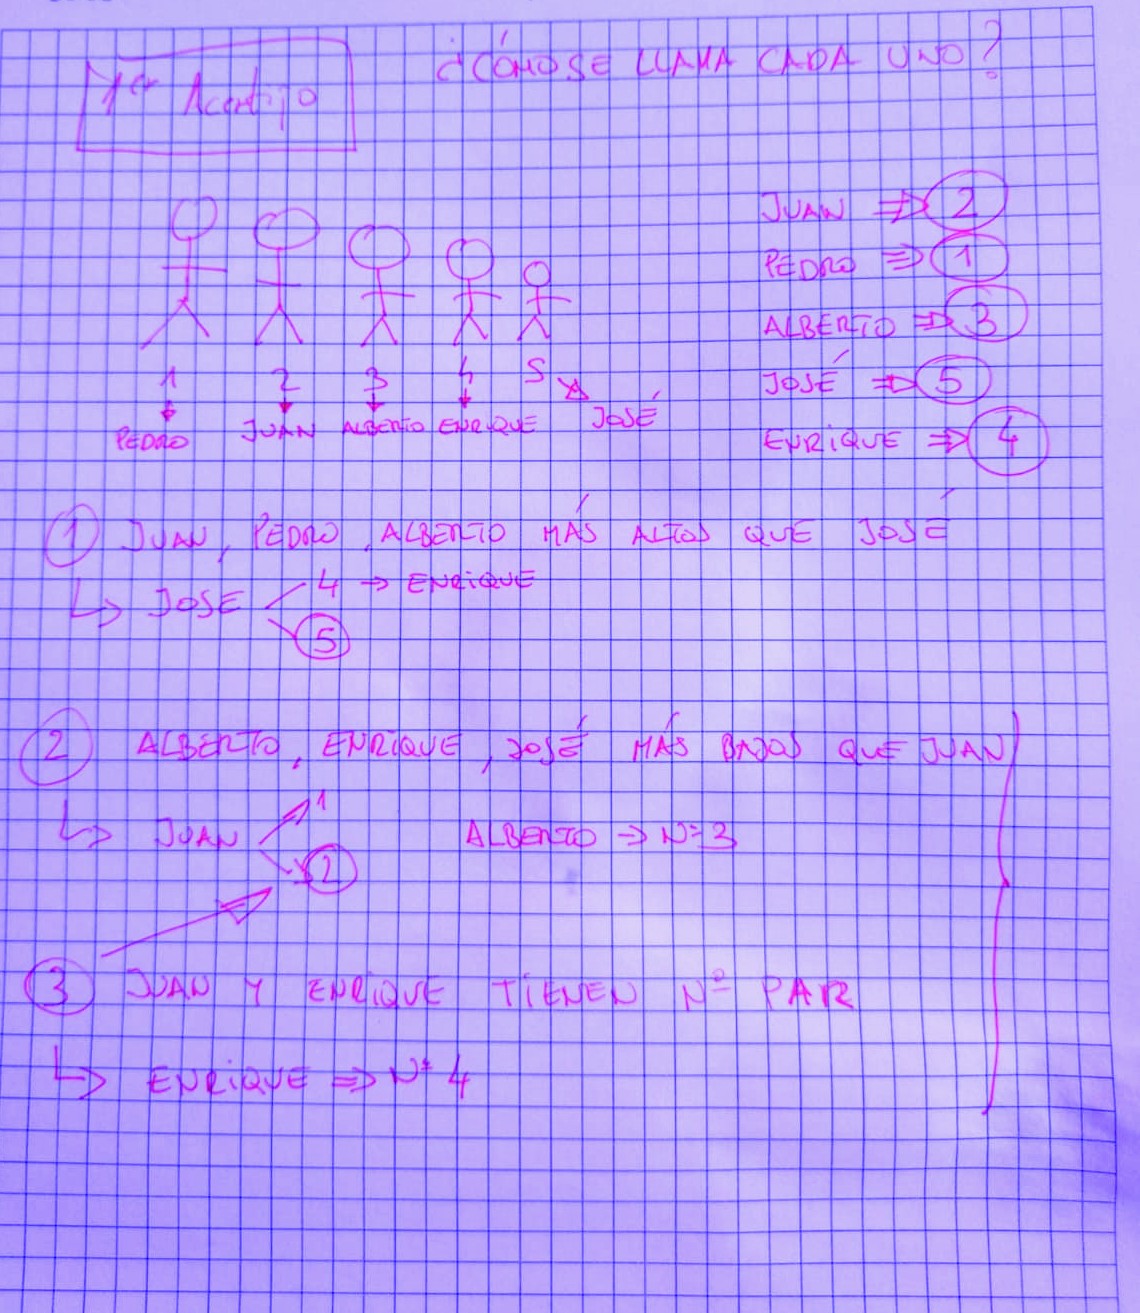 ¿CÓMO SE LLAMA CADA UNO?
1er Acertijo
JUAN ⇒ 2
PEDRO ⇒ 1
ALBERTO ⇒ 3
JOSÉ ⇒ 5
ENRIQUE ⇒ 4
1 2 3 4 5
PEDRO JUAN ALBERTO ENRIQUE JOSÉ
1 JUAN, PEDRO, ALBERTO MÁS ALTOS QUE JOSÉ
JOSE 4 → ENRIQUE
5
2 ALBERTO, ENRIQUE, JOSÉ MÁS BAJOS QUE JUAN
1
JUAN ALBERTO → Nº 3
2
3 JUAN Y ENRIQUE TIENEN Nº PAR
ENRIQUE ⇒ Nº 4